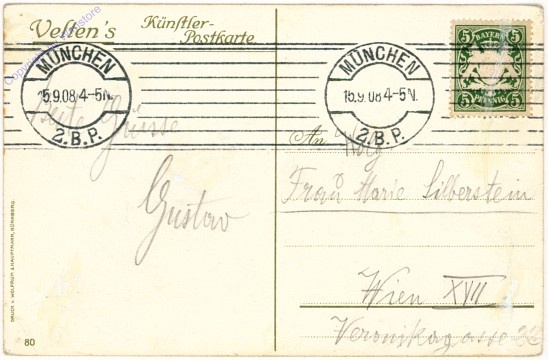 Velten's Künstler-
Postkarte
MÜNCHEN
15.9.08 4-5N.
2.B.P.
MÜNCHEN
15.9.08 4-5N.
2.B.P.
5 BAYERN 5
5 PFENNIG 5
Beste Grüsse
Gustav
An
Frau Marie Silberstein
Wien XVII
Veronikagasse
DRUCK V. WOLFRUM & HAUPTMANN, NÜRNBERG.
80